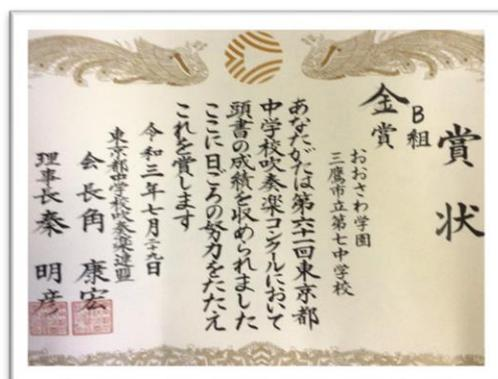 賞状
B組
金賞
おおさわ学園
三鷹市立第七中学校
あなたがたは第六十一回東京都
中学校吹奏楽コンクールにおいて
頭書の成績を収められました
ここに日ごろの努力をたたえ
これを賞します
令和三年七月二十九日
東京都中学校吹奏楽連盟
会長角 康宏
理事長秦 明彦